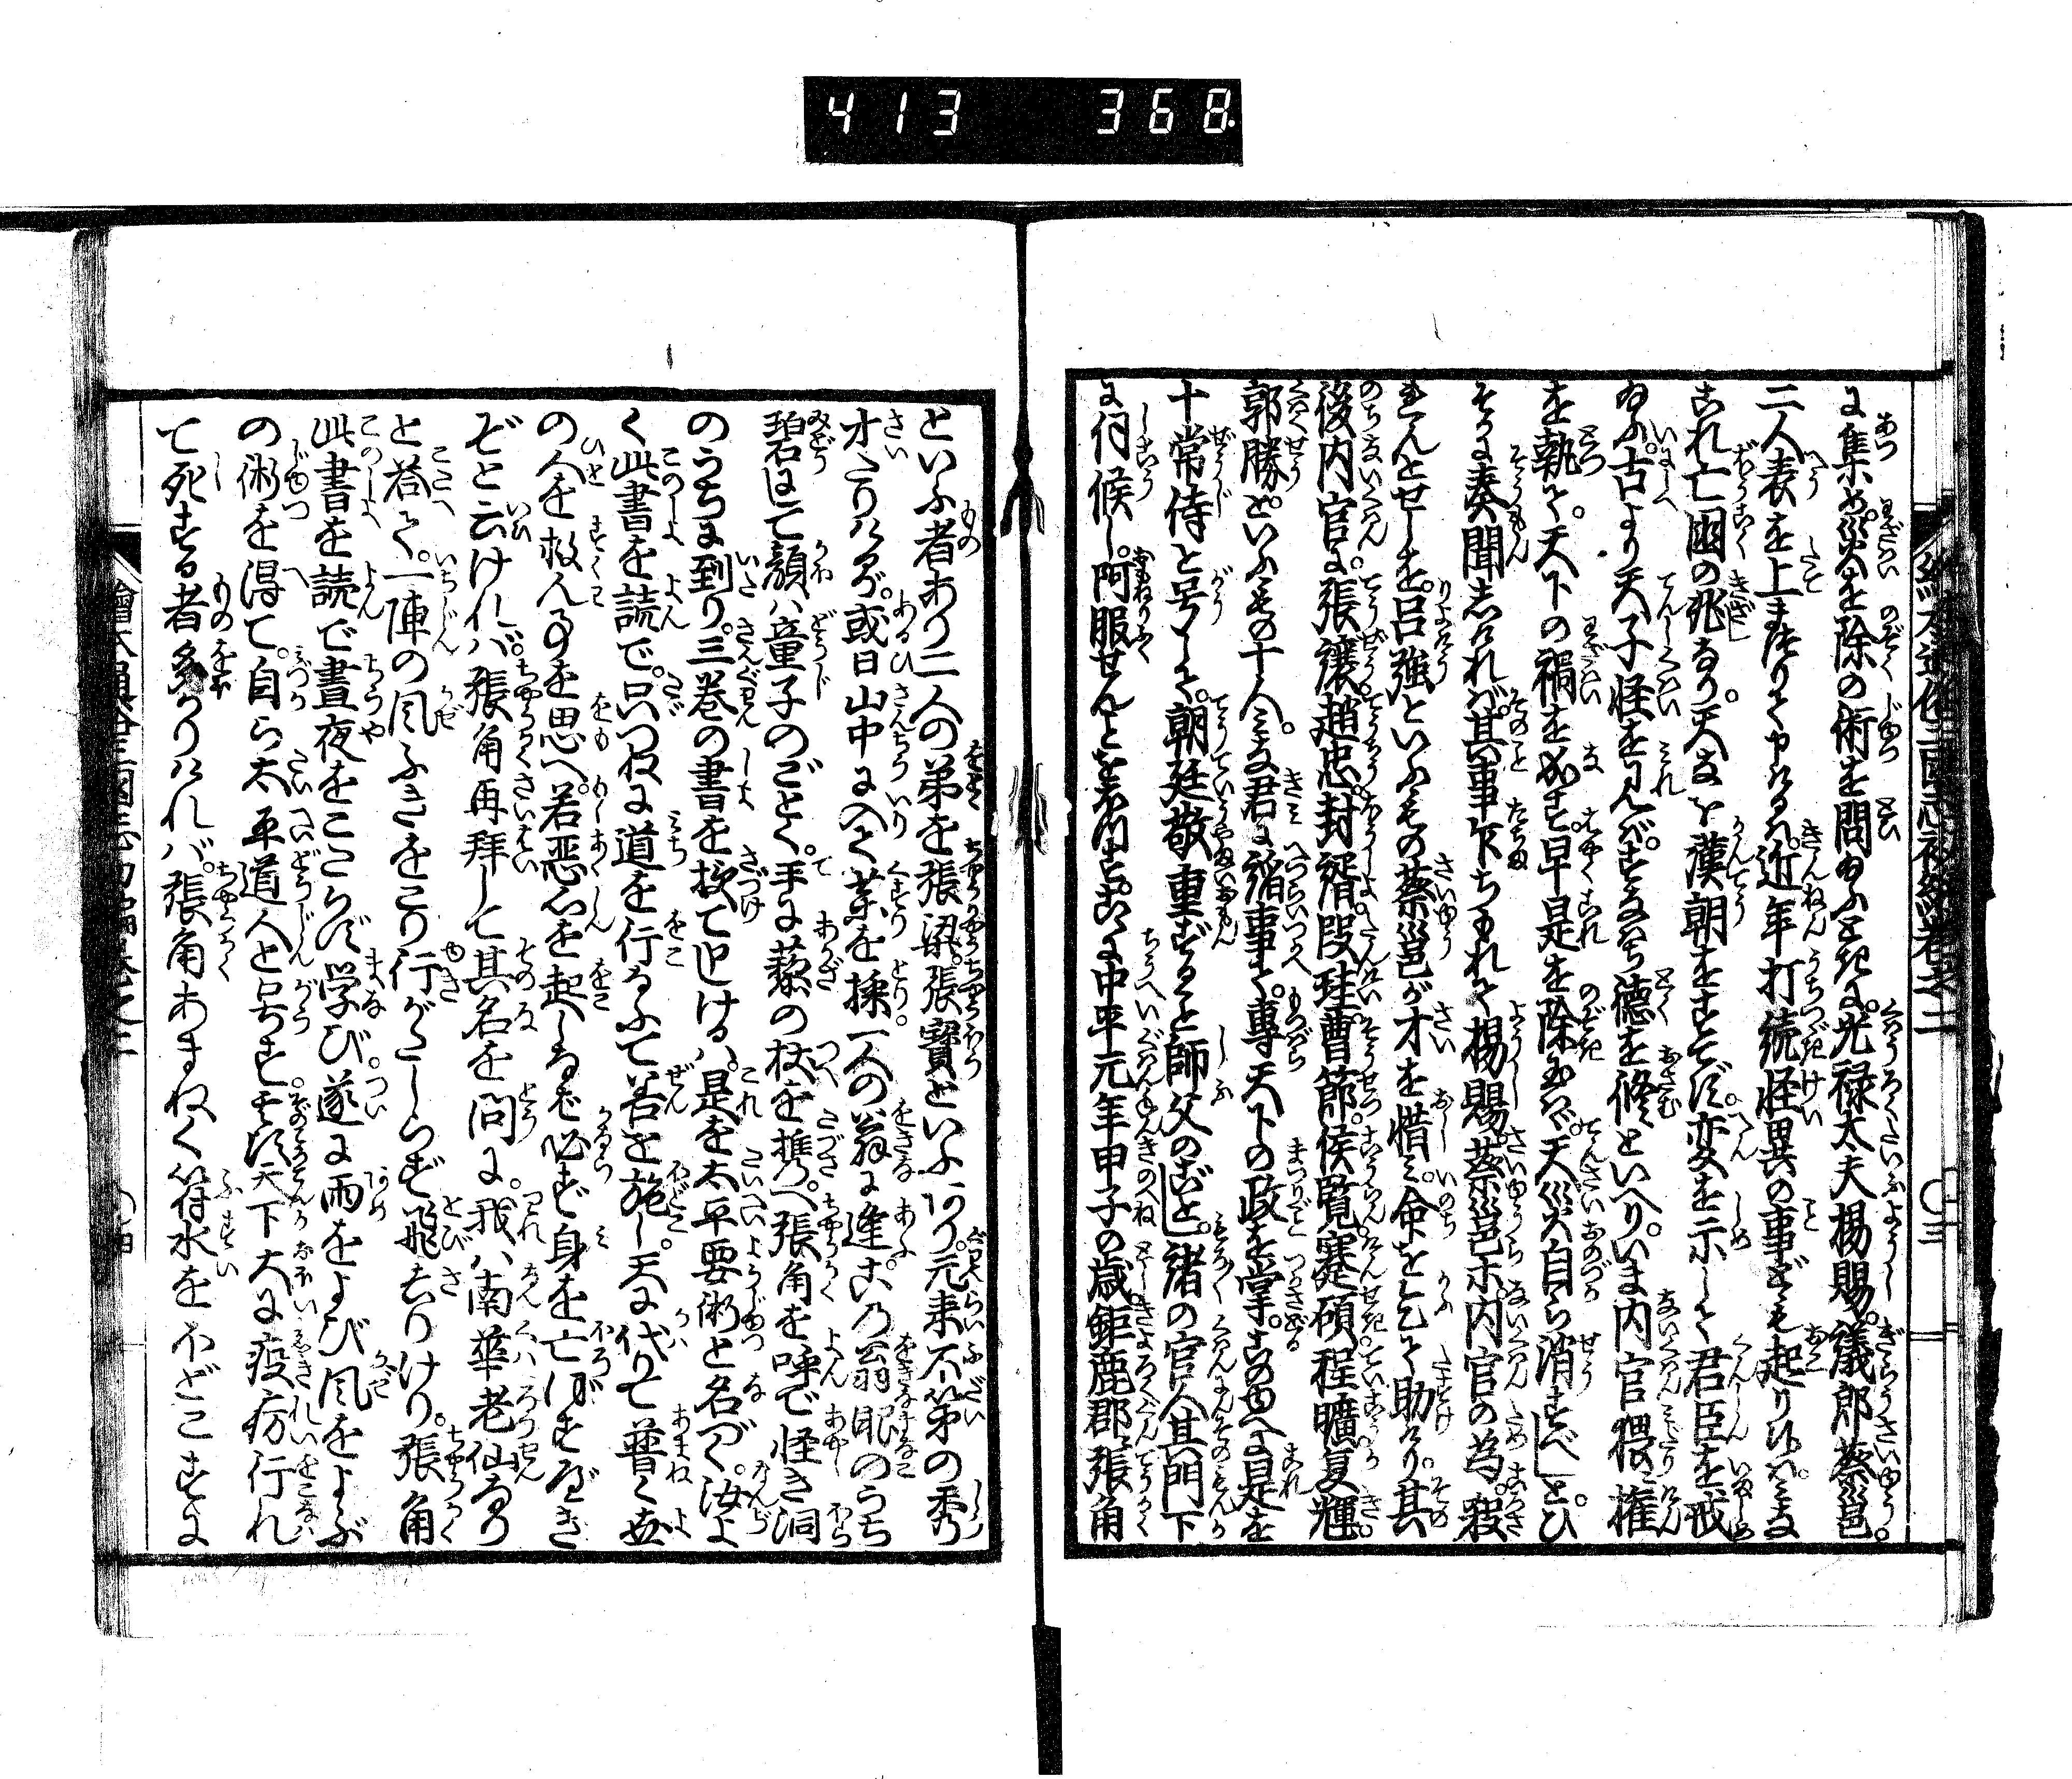 413 368
に集め災を除の術を問給ふときに光禄太夫楊賜。議郎蔡邕。
二人表を上まつりて申けるハ近年打続怪異の事ども起り候ハみな
これ亡國の兆なり。天なを漢朝をすてず。変を示して君臣を戒
給ふ。古より天子怪を見れバすなハち徳を修といへり。いま内官猥に権
を執て。天下の禍をなす。早く是を除給ハバ。天災自ら消すべしと。ひ
そかに奏聞しけれバ。其事下ちもれて楊賜蔡邕等。内官の為。殺
されんとせしを。呂強といふもの蔡邕が才を惜ミ。命を乞て助けり。其
後内官に。張譲。趙忠。封諝。段珪。曹節。侯覧。蹇碩。程曠。夏輝
郭勝。といふもの十人。ミな君に諂事て。專天下の政を掌。このゆへに是を
十常侍と号して。朝廷敬重ずると師父のごとし。諸の官人其門下
に伺候し。阿服せんとをねがハす。こゝに中平元年甲子の歳鉅鹿郡張角
といふ者あり二人の弟を張梁。張寶といふ。元来不第の秀
才なりけるが。或日山中に入て薬を採一人の翁に逢。この翁眼のうち
碧にて顔ハ童子のごとく。手に藜の杖を携へ張角を呼で怪き洞
のうちに到り。三巻の書を授て申ける。ハ。是を太平要術と名づく。汝よ
く此書を読で。只つねに道を行るふて善を施し。天に代りて普く世
の人を救ん事を思へ。若悪心を起しなバ必ず身を亡ぼすべき
ぞと云けれバ。張角再拝して其名を問に。我ハ南華老仙なり
と答て。一陣の風ふきをこり行がたしらず飛去りけり。張角
此書を読で昼夜をこたらず学び。遂に雨をよび風をよぶ
の術を得て。自ら太平道人と号す其頃天下大に疫癘行れ
て死する者多かりけれバ。張角あまねく符水をほどこすに